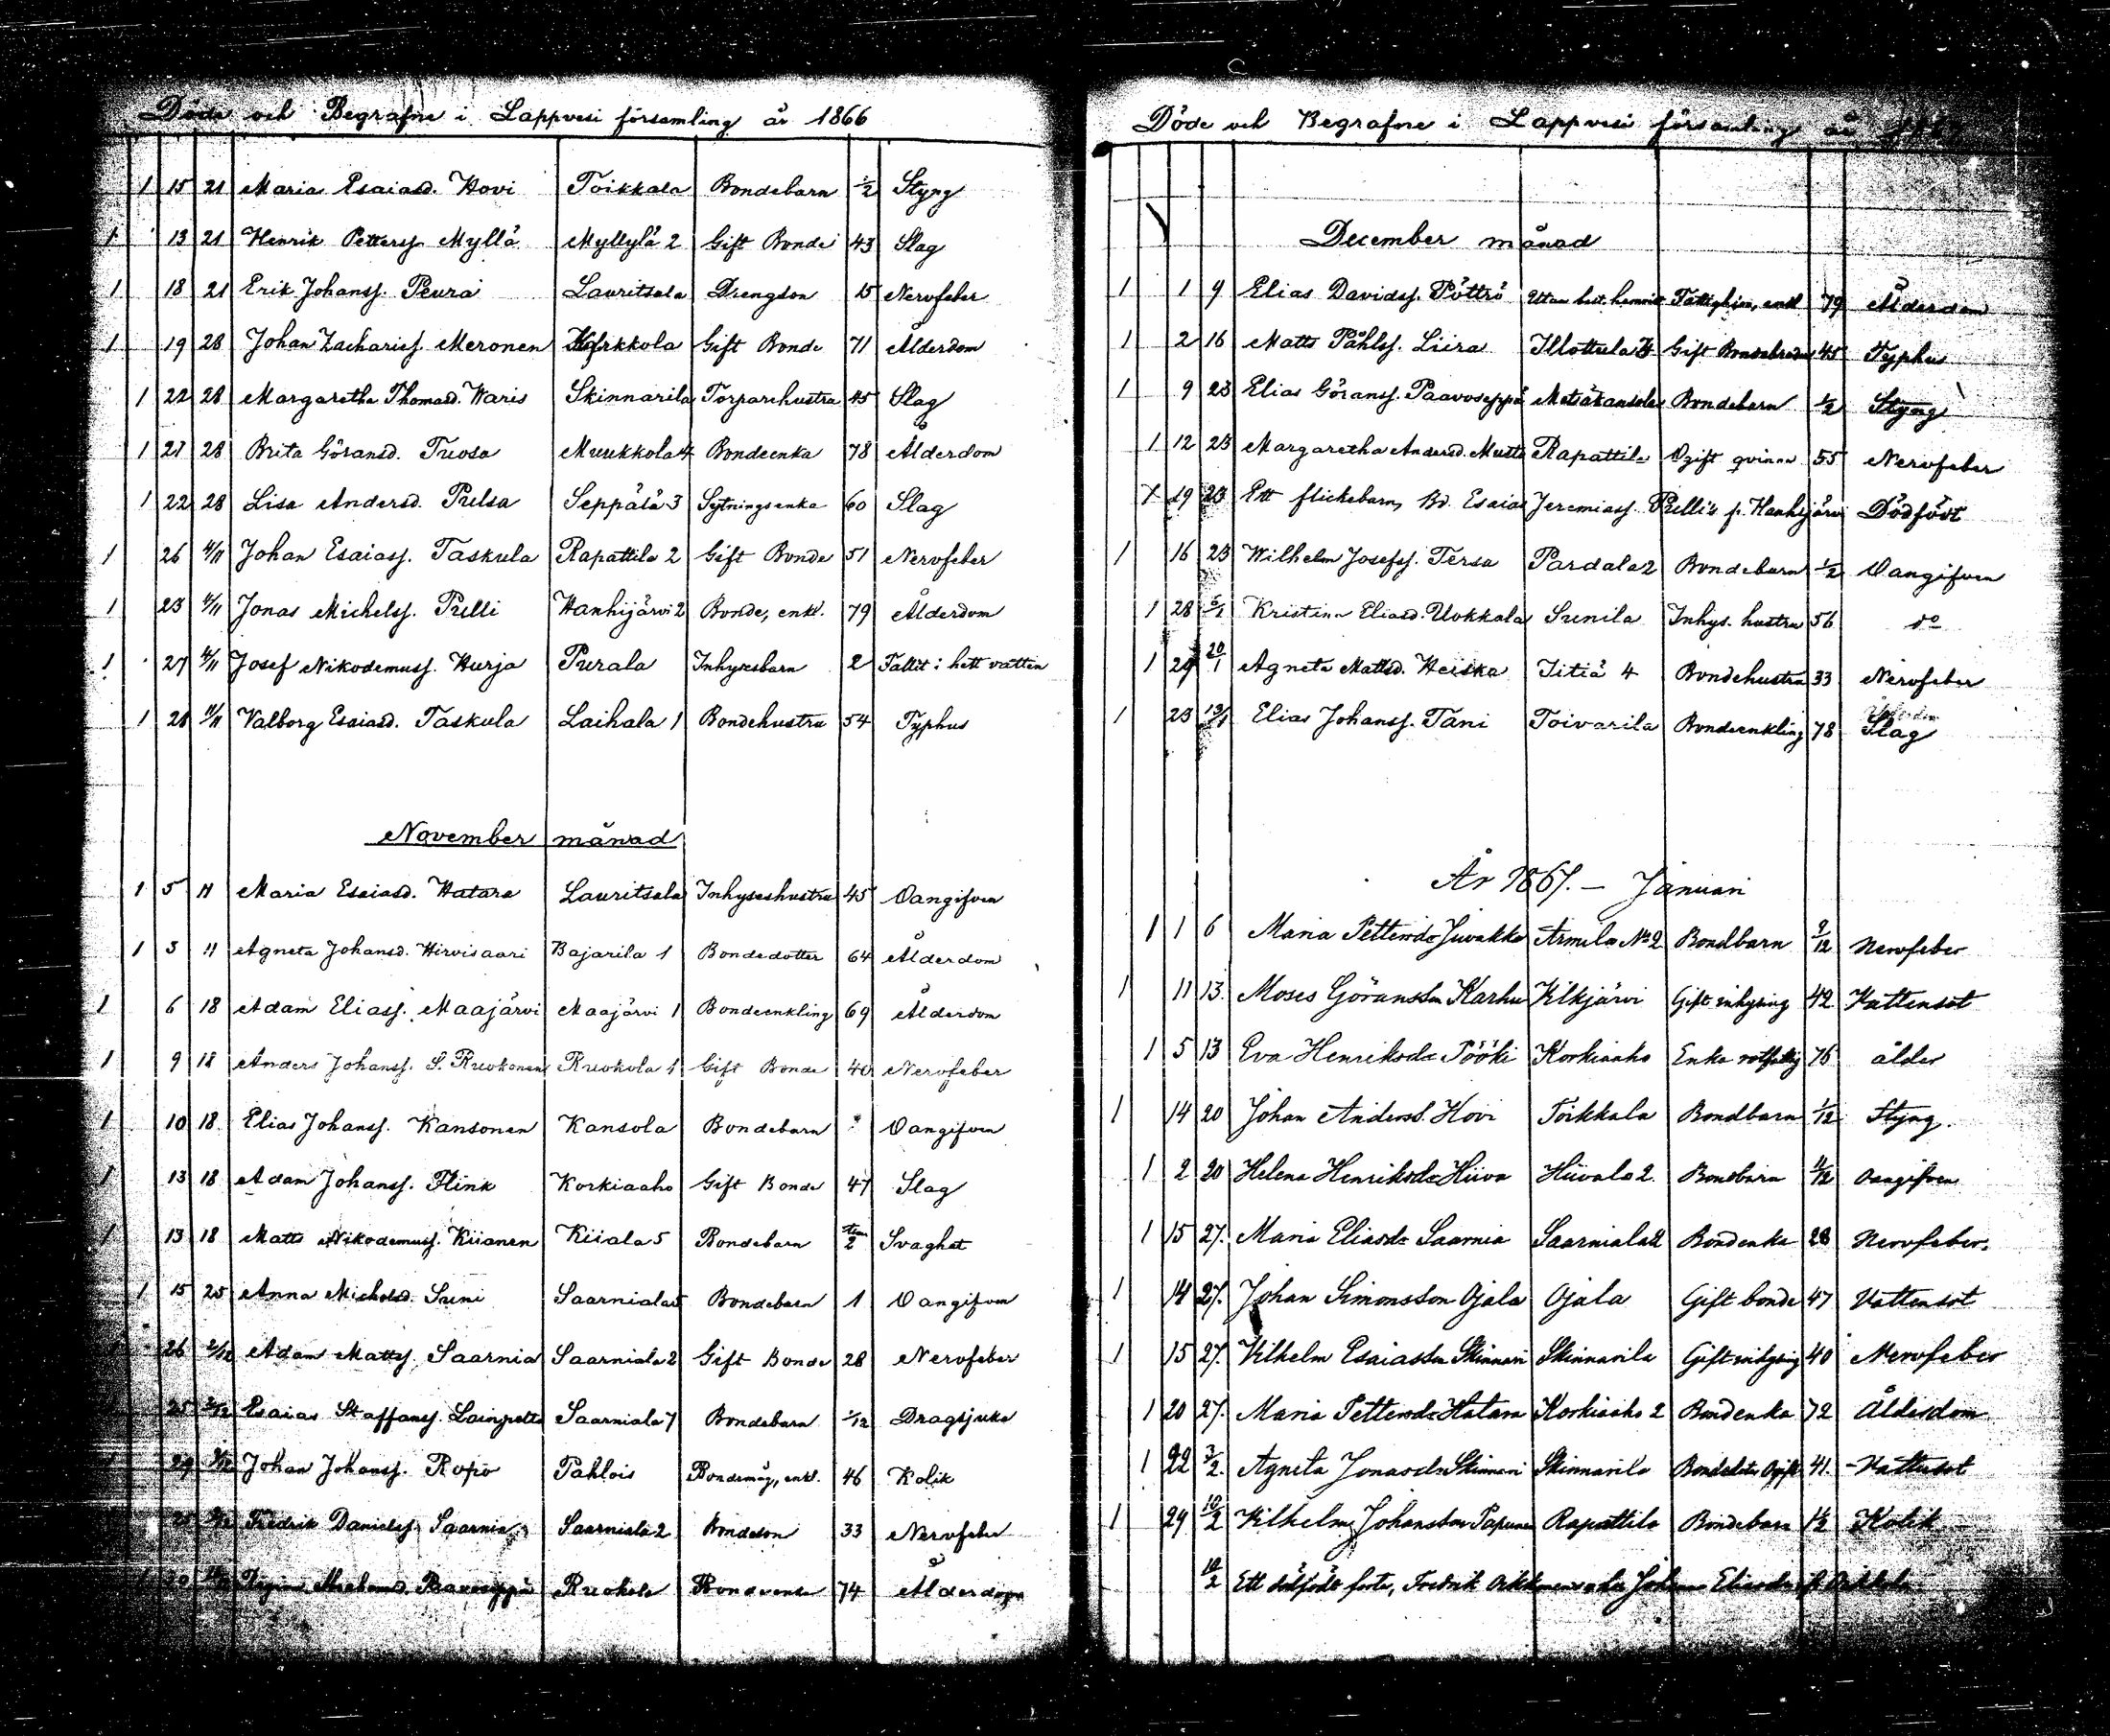 Döde och Begrafne i Lappvesi församling år 1866
1 15 21 Maria Esaiasd. Hovi Toikkala Bondebarn 1/2 Styng
1 13 21 Henrik Petterss. Myllä Myllylä 2 Gift Bonde 43 Slag
1 18 21 Erik Johanss. Peura Lauritsala Drengson 15 Nervfeber
1 19 28 Johan Zachariss. Meronen Karkkola Gift Bonde 71 Ålderdom
1 22 28 Margaretha Thomasd. Waris Skinnarila Torparehustru 45 Slag
1 21 28 Brita Göransd. Tuosa Muukkola 4 Bondeenka 78 Ålderdom
1 22 28 Lisa Andersd. Pulsa Seppälä 3 Sytningsenka 60 Slag
1 26 4/11 Johan Esaiass. Taskula Rapattila 2 Gift Bonde 51 Nervfeber
1 23 4/11 Jonas Michelss. Pulli Hanhijärvi 2 Bonde, enkl. 79 Ålderdom
1 27 4/11 Josef Nikodemuss. Hurja Purala Inhysesbarn 2 Fallit i hett vatten
1 28 11/11 Valborg Esaiasd. Taskula Laihala 1 Bondehustru 54 Typhus
November månad
1 5 11 Maria Esaiasd. Hatara Lauritsala Inhyseshustru 45 Oangifven
1 3 11 Agneta Johansd. Hirvisaari Bajarila 1 Bondedotter 64 Ålderdom
1 6 18 Adam Eliass. Maajärvi Maajärvi 1 Bondeenkling 69 Ålderdom
1 9 18 Anders Johanss. S. Ruokonen Ruohola 1 Gift Bonde 40 Nervfeber
1 10 18 Elias Johanss. Kansonen Kansola Bondebarn Oangifven
1 13 18 Adam Johanss. Flink Korkiaaho Gift Bonde 47 Slag
1 13 18 Matts Nikodemuss. Kiianen Kiiala 5 Bondebarn 2 Svaghet
1 15 25 Anna Michelsd. Suni Saarniala 5 Bondebarn 1 Oangifven
26 2/12 Adam Mattss. Saarnia Saarniala 2 Gift Bonde 28 Nervfeber
25 2/12 Esaias Staffanss. Lainpelto Saarniala 7 Bondebarn 1/12 Dragsjuka
29 Johan Johanss. Ropo Pahlois Bondemåg, enkl. 46 Kolik
Fredrik Danielss. Saarnia Saarniala 2 Bondeson 33 Nervfeber
Ruohola Bondeenka 74 Ålderdom
Döde och Begrafne i Lappvesi församling år
December månad
1 1 9 Elias Davidss. Pöttrö Utan best. hemvist Fattighjon, enkl 79 Ålderdom
1 2 16 Matts Påhlss. Liira Illottula Gift Bondebroder 45 Typhus
1 9 23 Elias Göranss. Paavoseppä Metsäkansola Bondebarn 1/2 Styng
1 12 23 Margaretha Andersd. Mutta Rapattila Ogift qvinna 55 Nervfeber
19 23 Ett flickebarn, Bd. Esaias Jeremiass. Pulli's fr. Hanhijärvi Dödfödt
1 16 23 Wilhelm Josefss. Tersa Pardala 2 Bondebarn 1/2 Oangifven
1 28 6/1 Kristina Eliasd. Uokkala Sunila Inhys. hustru 56 do
1 29 20/1 Agneta Mattsd. Heiska Iitiä 4 Bondehustru 33 Nervfeber
1 23 13/1 Elias Johanss. Tani Toivarila Bondeenkling 78 Slag
År 1867. – Januari
1 1 6 Maria Pettersdr Juvakka Armila No 2 Bondbarn 9/12 Nervfeber
1 11 13. Moses Göransson Karhu Kilkjärvi Gift inhysing 42 Vattensot
1 5 13 Eva Henriksdr Pööki Korkiaaho Enka rotfattig 76 ålder
1 14 20 Johan Anderss. Hovi Toikkala Bondbarn 1/12 Styng.
1 2 20 Helena Henriksdr Hiiva Hiivala 2. Bondbarn 4/12 Oangifven
1 15 27. Maria Eliasdr Saarnia Saarniala 2 Bondenka 28 Nervfeber.
1 14 27. Johan Simonsson Ojala Ojala Gift bonde 47 Vattensot
1 15 27. Vilhelm Esaiasson Skinnari Skinnarila Gift inhysing 40 Nervfeber
1 20 27. Maria Pettersdr Hatara Korkiaaho 2 Bondenka 72 Ålderdom
1 22 3/2. Agneta Jonasdr Skinnari Skinnarila Bondedotter Ogift 41. Vattensot
1 29 10/2 Vilhelm Johansson Papunen Rapattila Bondebarn 1/2 Kolik
10/2 Ett dödfödt foster, Fredrik